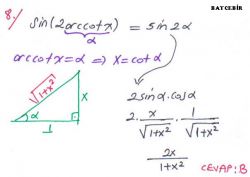 BAYCEBİR
8.) sin(2arccotx) = sin2α
α
arccotx=α ⇒ x=cotα
√1+x²
x
α
1
2sinα.cosα
2. x/√1+x² . 1/√1+x²
2x/1+x²
CEVAP:B